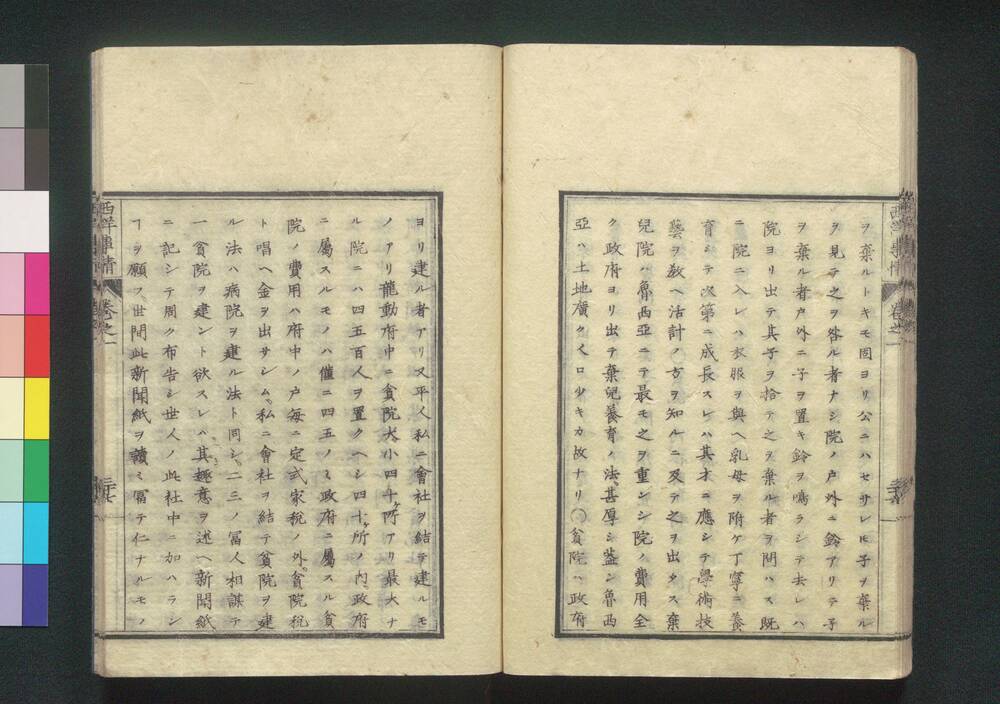 ヲ棄ルトキモ固ヨリ公ニハセサレㇳ𪜈子ヲ棄ル
ヲ見テ之ヲ咎ル者ナシ院ノ戸外ニ鈴アリテ子
ヲ棄ル者戸外ニ子ヲ置キ鈴ヲ鳴ラシテ去レハ
院ヨリ出テ其子ヲ拾テ之ヲ棄ル者ヲ問ハス既
ニ院ニ入レハ衣服ヲ與ヘ乳母ヲ附ケ丁寧ニ養
育シテ次第ニ成長スレハ其才ニ應シテ學術技
藝ヲ教ヘ活計ノ方ヲ知ルニ及テ之ヲ出タス棄
兒院ハ魯西亞ニテ最モ之ヲ重ンシ院ノ費用全
ク政府ヨリ出テ棄兒養育ノ法甚厚シ蓋シ魯西
亞ハ土地廣ク人口少キカ故ナリ〇貧院ハ政府
ヨリ建ル者アリ又平人私ニ會社ヲ結テ建ルモ
ノアリ龍動府中ニ貧院大小四十ケ所アリ最大ナ
ル院ニハ四五百人ヲ置クヘシ四十ケ所ノ内政府
ニ屬スルモノハ僅ニ四五ノミ政府ニ屬スル貧
院ノ費用ハ府中ノ戸毎ニ定式家税ノ外貧院税
ト唱ヘ金ヲ出サシム私ニ會社ヲ結テ貧院ヲ建
ル法ハ病院ヲ建ル法ト同シ二三ノ冨人相謀テ
一貧院ヲ建ント欲スレハ其趣意ヲ述ヘ新聞紙
ニ記シテ周ク布告シ世人ノ此社中ニ加ハラン
ヿヲ願フ世間此新聞紙ヲ讀ミ冨テ仁ナルモノ
西洋事情
卷之一